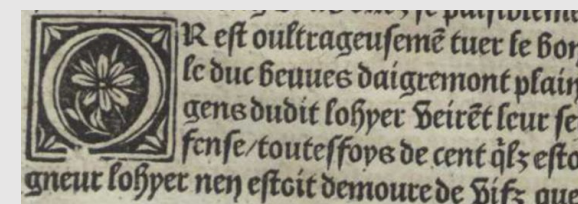 OR est oultrageusemẽt tuer le bon
le duc beuues daigremont plain
gens dudit lohyer veirẽt leur se
fense/toutesfoys de cent q̃lz esto
gneur lohyer nen estoit demoure de vifz que